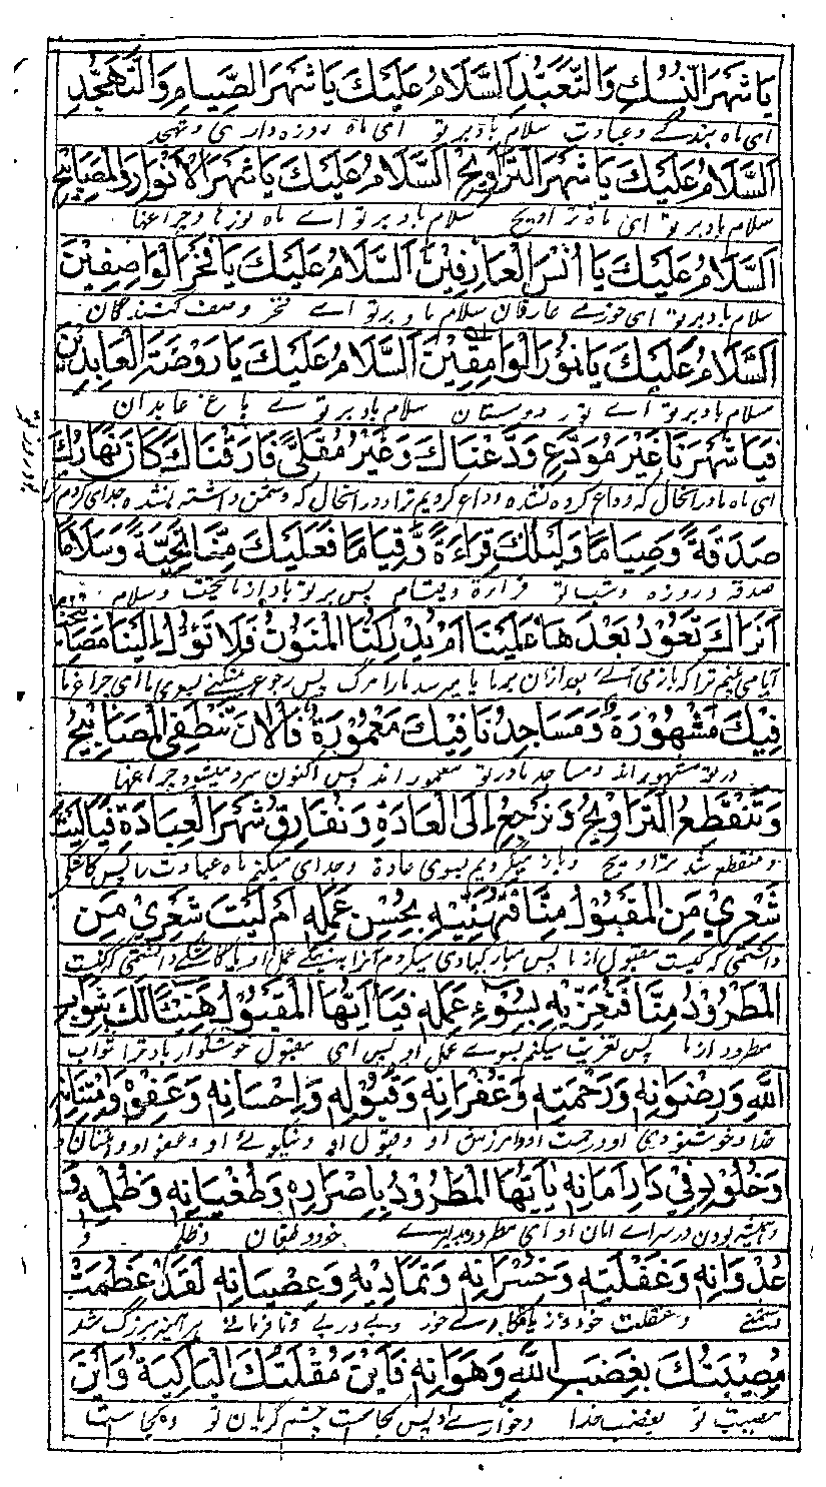 يَا شَهْرَ النُّسُكِ وَالتَّعَبُّدِ اَلسَّلَامُ عَلَيْكَ يَا شَهْرَ الصِّيَامِ وَالتَّهَجُّدِ
ای ماه بندگے و عبادت سلام باد بر تو ای ماه روزه داری و تهجد
اَلسَّلَامُ عَلَيْكَ يَا شَهْرَ التَّرَاوِيْحِ اَلسَّلَامُ عَلَيْكَ يَا شَهْرَ الْاَنْوَارِ وَالْمَصَابِيْحِ
سلام باد بر تو ای ماه تراویح سلام باد بر تو اے ماه نورها و چراغها
اَلسَّلَامُ عَلَيْكَ يَا اُنْسَ الْعَارِفِيْنَ اَلسَّلَامُ عَلَيْكَ يَا فَخْرَ الْوَاصِفِيْنَ
سلام باد بر تو ای عارفان سلام باد بر تو اے فخر وصف کنندگان
اَلسَّلَامُ عَلَيْكَ يَا نُوْرَ الْوَامِقِيْنَ اَلسَّلَامُ عَلَيْكَ يَا رَوْضَةَ الْعَابِدِيْنَ
سلام باد بر تو اے نور دوستان سلام باد بر تو اے باغ عابدان
فَيَا شَهْرَنَا غَيْرَ مُوَدَّعٍ وَدَّعْنَاكَ وَغَيْرَ مُقْلًى فَارَقْنَاكَ كَانَ نَهَارُكَ
ای ماه ما در انحال که وداع کرده نشده وداع کردیم ترا و در انحال که دشمن داشته نشده جدای کردم ترا
صَدَقَةً وَصِيَامًا وَلَيْلُكَ قِرَاءَةً وَقِيَامًا فَعَلَيْكَ مِنَّا تَحِيَّةً وَسَلَامًا
صدقه و روزه و شب تو قراءة و قیام پس بر تو باد از ما تحیت و سلام
اَتَرَاكَ تَعُوْدُ بَعْدَهَا عَلَيْنَا اَمْ يُدْرِكُنَا الْمَنُوْنُ فَلَا تَؤُلُ اِلَيْنَا مَصَابِيْحُنَا
آیا می بینم ترا که باز می آئے بعد ازان بر ما یا میرسد ما را مرگ پس رجوع نمیکنے بسوی ما ای چراغ ما
فِيْكَ مَشْهُوْرَةٌ وَمَسَاجِدُنَا فِيْكَ مَعْمُوْرَةٌ فَالْاٰنَ تَنْطَفِى الْمَصَابِيْحُ
در تو مشهور اند و مساجد ما در تو معمور اند پس اکنون سرد میشود چراغها
وَتَنْقَطِعُ التَّرَاوِيْحُ وَنَرْجِعُ اِلَى الْعَادَةِ وَنُفَارِقُ شَهْرَ الْعِبَادَةِ فَيَا لَيْتَ
و منقطع شد تراویح و باز میگردیم بسوی عادة و جدای میکنم ماه عبادت را پس کاشکے
شِعْرِيْ مَنِ الْمَقْبُوْلُ مِنَّا فَنُهَنِّيْهِ بِحُسْنِ عَمَلِهِ اَمْ لَيْتَ شِعْرِيْ مَنِ
دانستمی که کیست مقبول از ما پس مبارکبادی میکردم آنرا به نیکے عمل او یا کاشکے دانستمی کیست
الْمَطْرُوْدُ مِنَّا فَنُعَزِّيْهِ بِسُوْءِ عَمَلِهِ فَيَا اَيُّهَا الْمَقْبُوْلُ هَنِيْئًا لَكَ بِثَوَابِ
مطرود از ما پس تعزیت میکنم بسوے عمل او پس ای مقبول خوشگوار باد ترا ثواب
اللّٰهِ وَرِضْوَانِهِ وَرَحْمَتِهِ وَغُفْرَانِهِ وَقَبُوْلِهِ وَاِحْسَانِهِ وَعَفْوِهِ وَامْتِنَانِهِ
خدا و خوشنودی او و رحمت او و امرزش او و قبول او و نیکوئے او و عفو او و امتنان او
وَخُلُوْدِهِ فِيْ دَارِ اَمَانِهِ يَا اَيُّهَا الْمَطْرُوْدُ بِاِصْرَارِهِ وَطُغْيَانِهِ وَظُلْمِهِ وَ
و همیشه بودن در سراے امان او ای مطرود خود و طغیان و ظلم و
عُدْوَانِهِ وَغَفْلَتِهِ وَخُسْرَانِهِ وَتَمَادِيْهِ وَعِصْيَانِهِ لَقَدْ عَظُمَتْ
دشمنے و غفلت خود و زیانکارے خود و پے در پے و نافرمانے هر آئینه بزرگ شد
مُصِيْبَتُكَ بِغَضَبِ اللّٰهِ وَهَوَانِهِ فَاَيْنَ مُقْلَتُكَ الْبَاكِيَةُ وَاَيْنَ
مصیبت تو بغضب خدا و خوارے او پس کجاست چشم گریان تو و کجاست